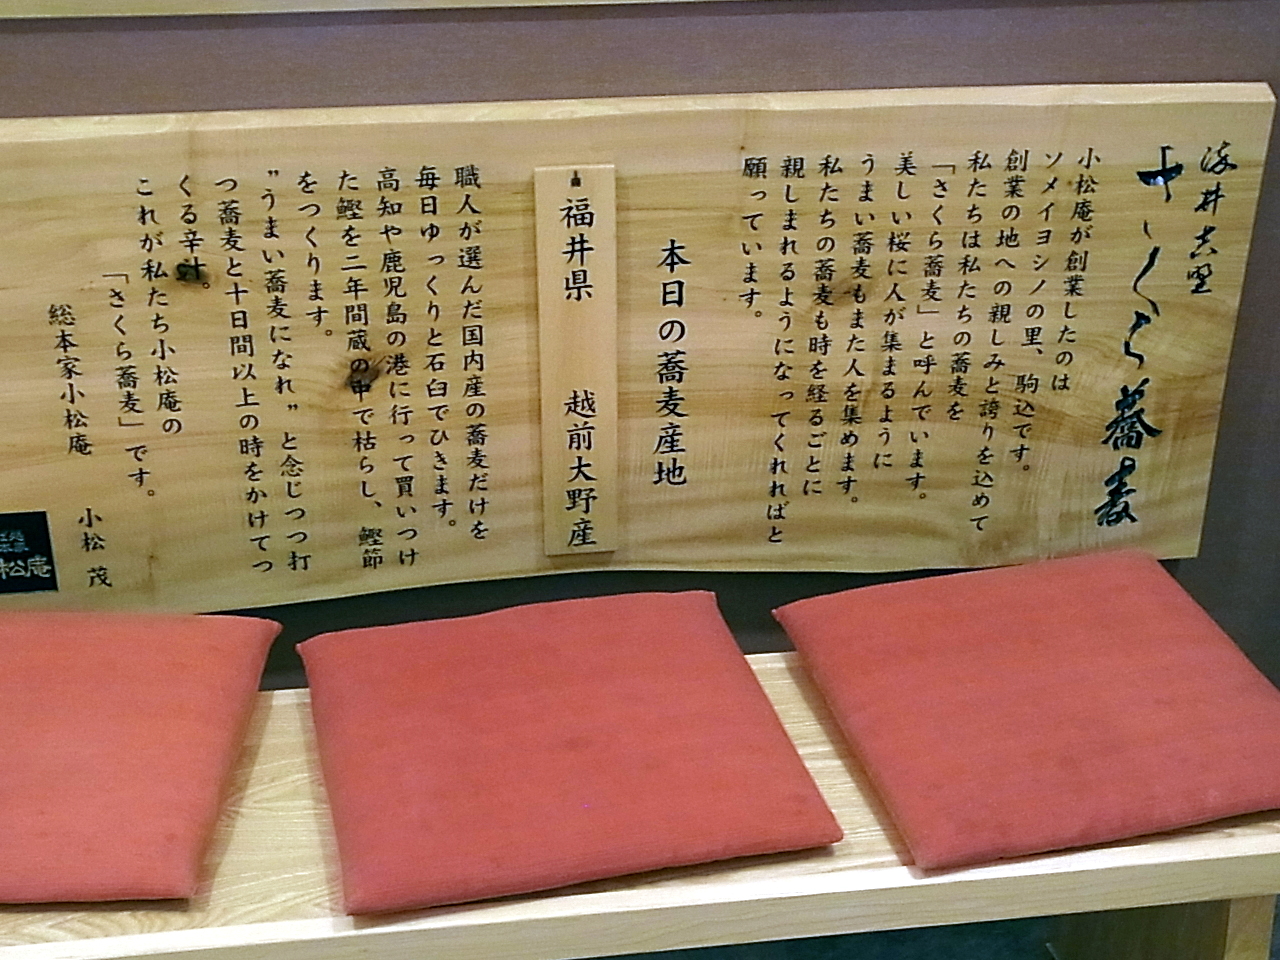 染井吉野
さくら蕎麦
小松庵が創業したのは
ソメイヨシノの里、駒込です。
創業の地への親しみと誇りを込めて
私たちは私たちの蕎麦を
「さくら蕎麦」と呼んでいます。
美しい桜に人が集まるように
うまい蕎麦もまた人を集めます。
私たちの蕎麦も時を経るごとに
親しまれるようになってくれればと
願っています。
本日の蕎麦産地
福井県 越前大野産
職人が選んだ国内産の蕎麦だけを
毎日ゆっくりと石臼でひきます。
高知や鹿児島の港に行って買いつけ
た鰹を二年間蔵の中で枯らし、鰹節
をつくります。
"うまい蕎麦になれ"と念じつつ打
つ蕎麦と十日間以上の時をかけてつ
くる辛汁。
これが私たち小松庵の
「さくら蕎麦」です。
総本家小松庵 小松 茂
松庵